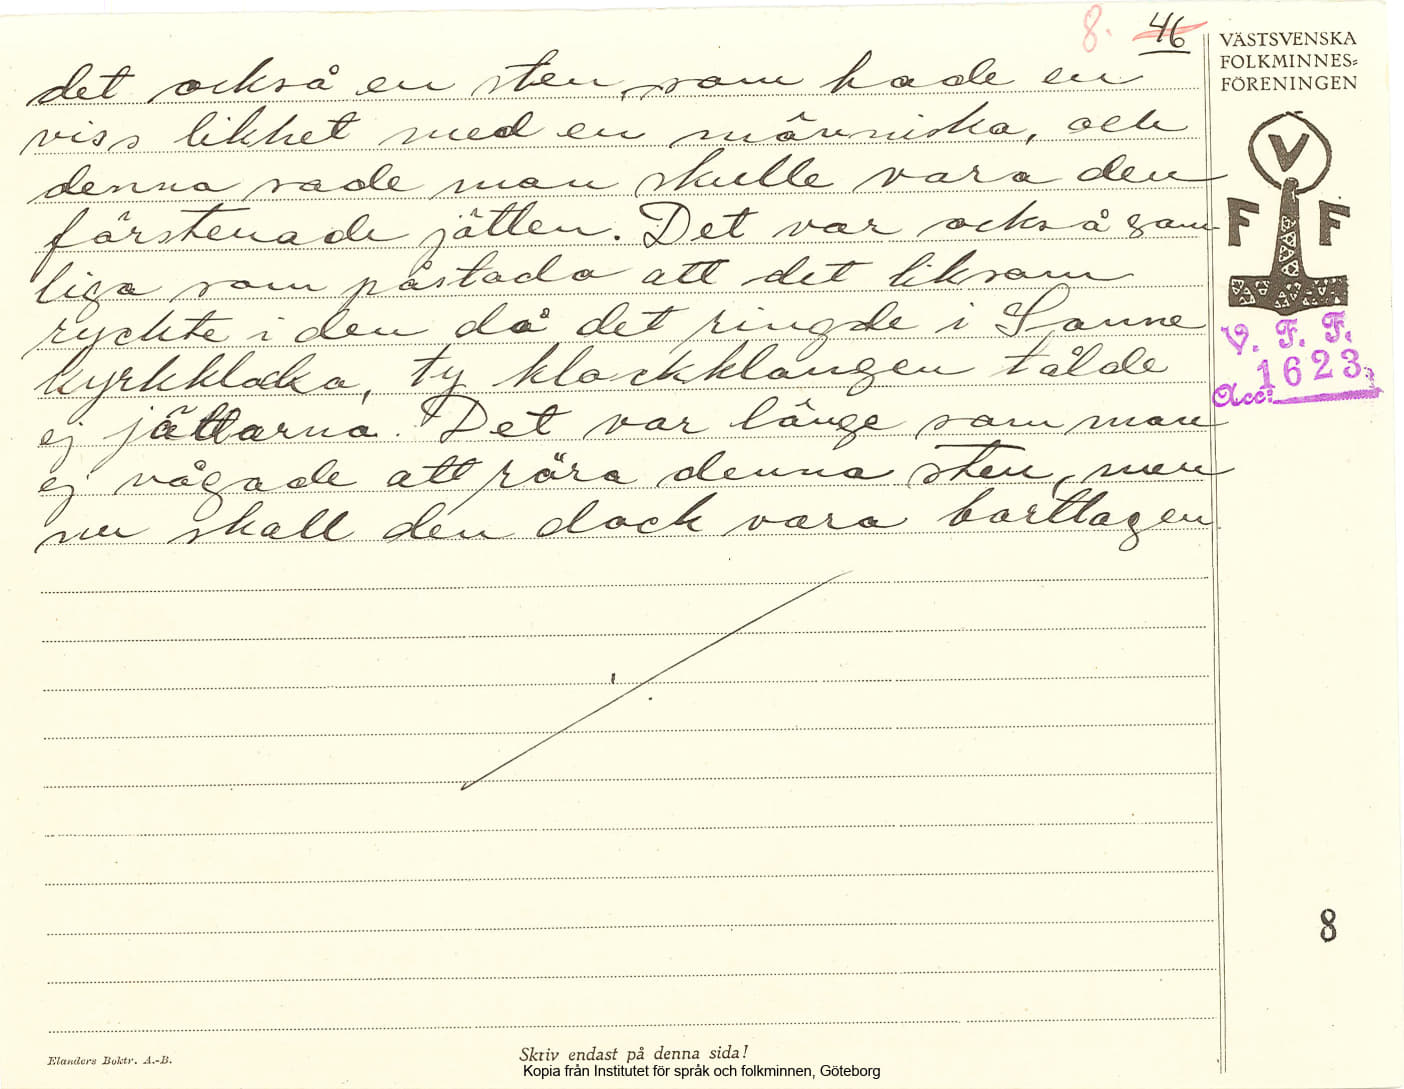 8. 46
VÄSTSVENSKA
FOLKMINNES=
FÖRENINGEN
det också en sten, som hade en
viss likhet med en människa, och
denna sade man skulle vara den
förstenade jätten. Det var också gam-
liga som påstodo att det liksom
ryckte i den då det ringde i Sanne
kyrkklocka, ty klockklangen tålde
ej jättarna. Det var länge som man
ej vågade att röra denna sten, men
nu skall den dock vara borttagen
V
F F
V. F. F.
Acc: 1623.
8
Elanders Boktr. A.-B.
Skriv endast på denna sida!
Kopia från Institutet för språk och folkminnen, Göteborg